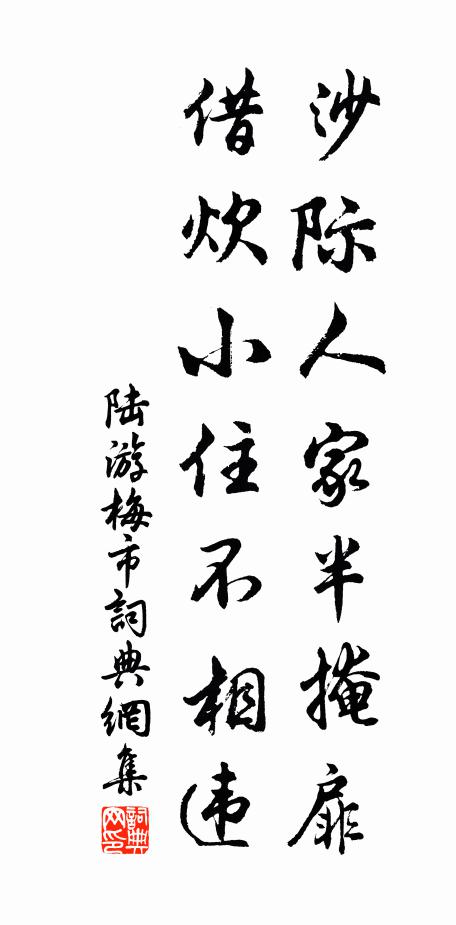 沙际人家半掩扉
借炊小住不相违
陆游梅市詞典網集
詞典网印